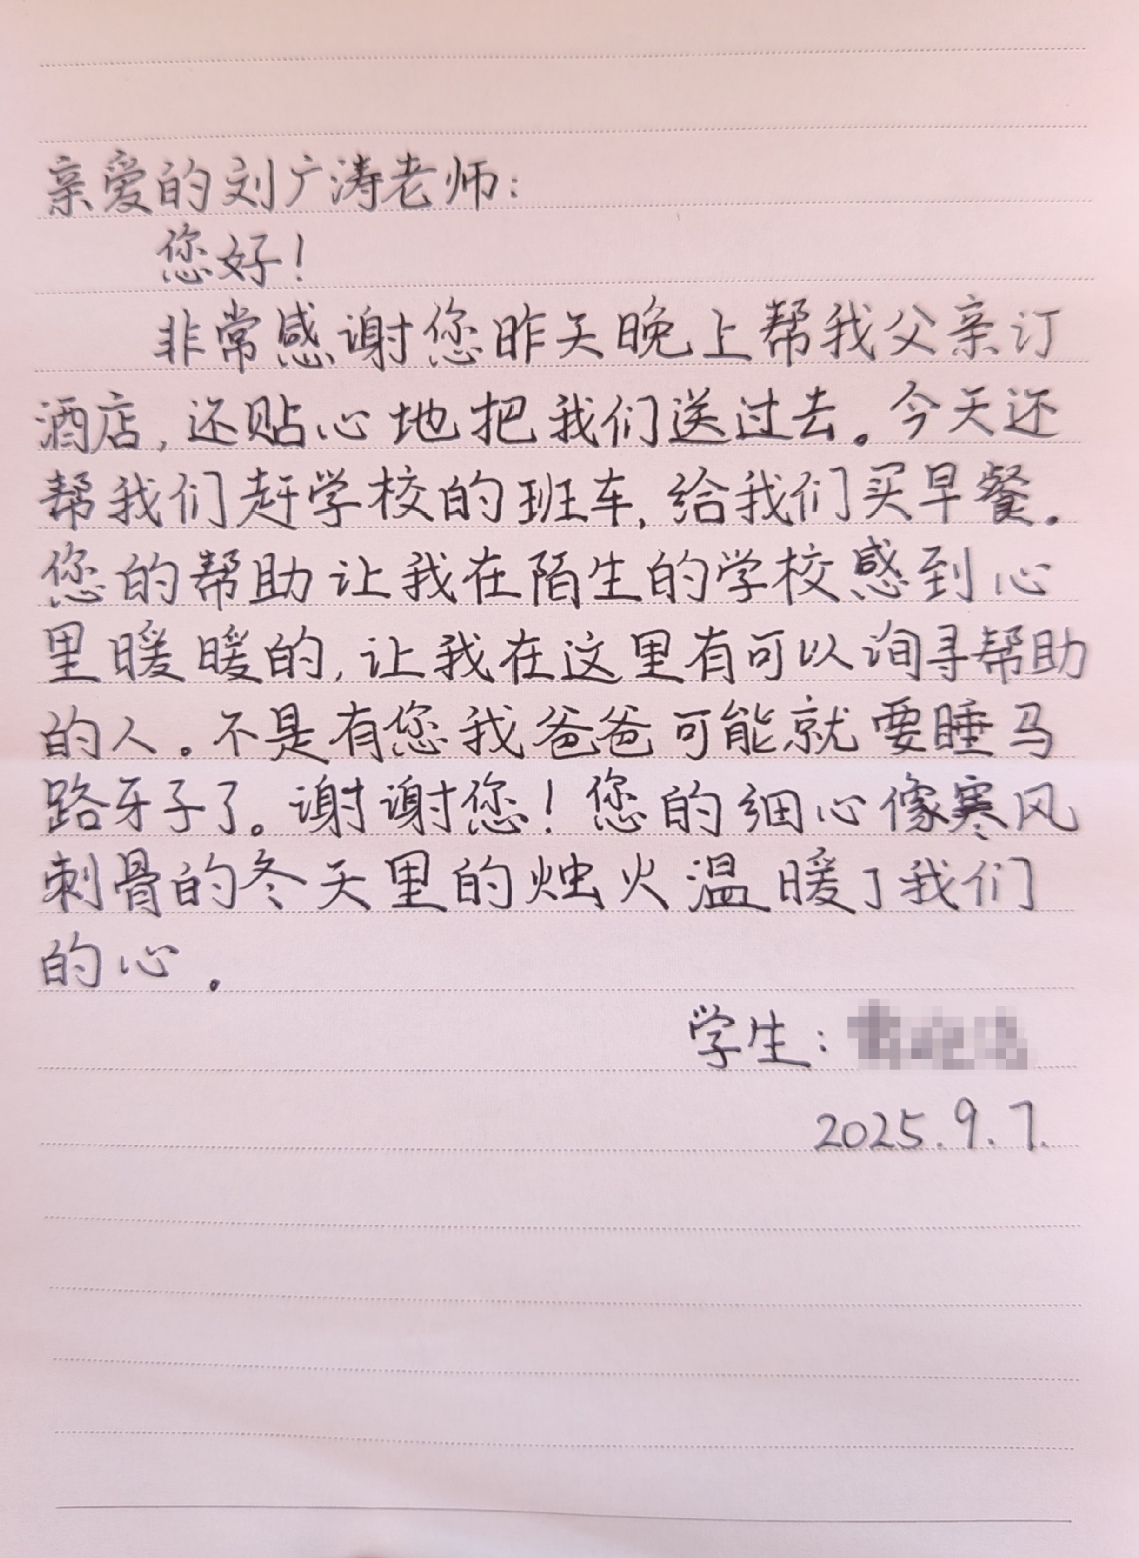 亲爱的刘广涛老师:
您好!
非常感谢您昨天晚上帮我父亲订
酒店,还贴心地把我们送过去。今天还
帮我们赶学校的班车,给我们买早餐。
您的帮助让我在陌生的学校感到心
里暖暖的,让我在这里有可以询寻帮助
的人。不是有您我爸爸可能就要睡马
路牙子了。谢谢您!您的细心像寒风
刺骨的冬天里的烛火温暖了我们
的心。
学生:
2025.9.7.